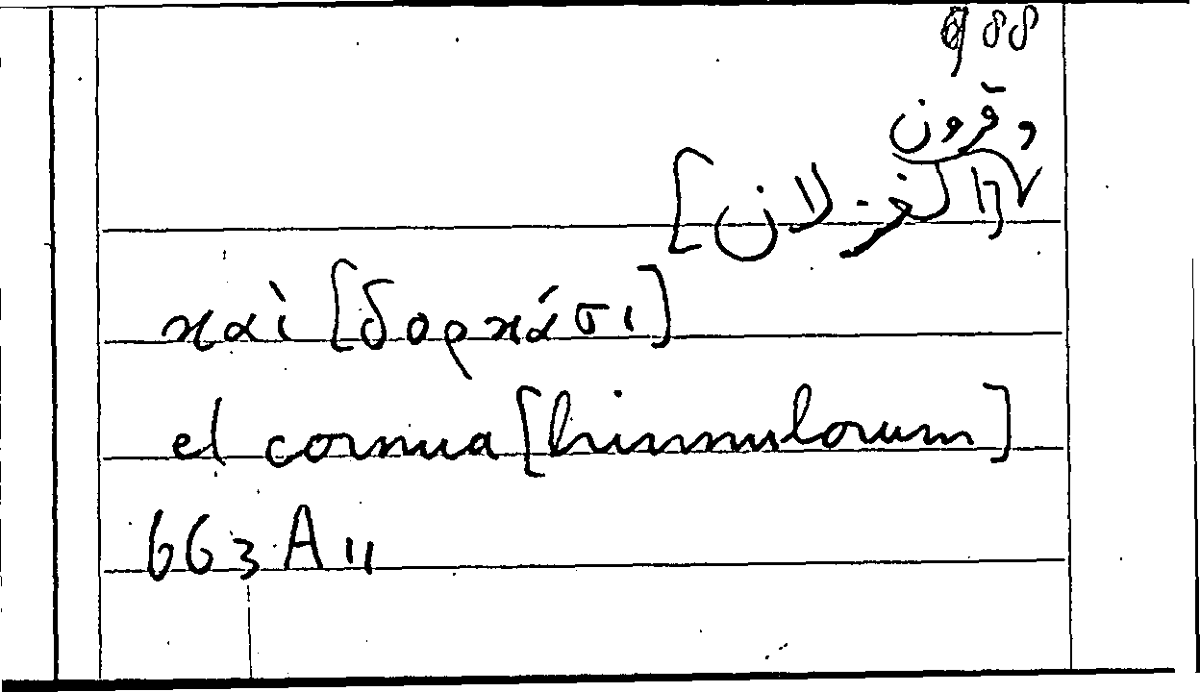 88
وقرون
[الغزلان]
καὶ [δορκάσι]
et cornua [hinnulorum]
663 A 11